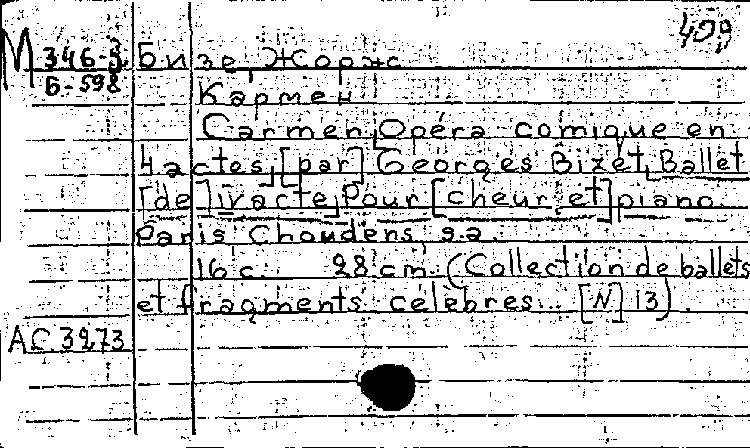 409
М 346-3 Бизе, Жорж
Б-598
Кармен
Carmen, Opéra comique en
4 actes, [par] Georges Bizet, Ballet
[de] iv acte, Pour [cheur et] piano.
Paris Choudens, s.a.
16 c. 28 cm. (Collection de ballets
et fragments célèbres... [N] 13).
AC 3273